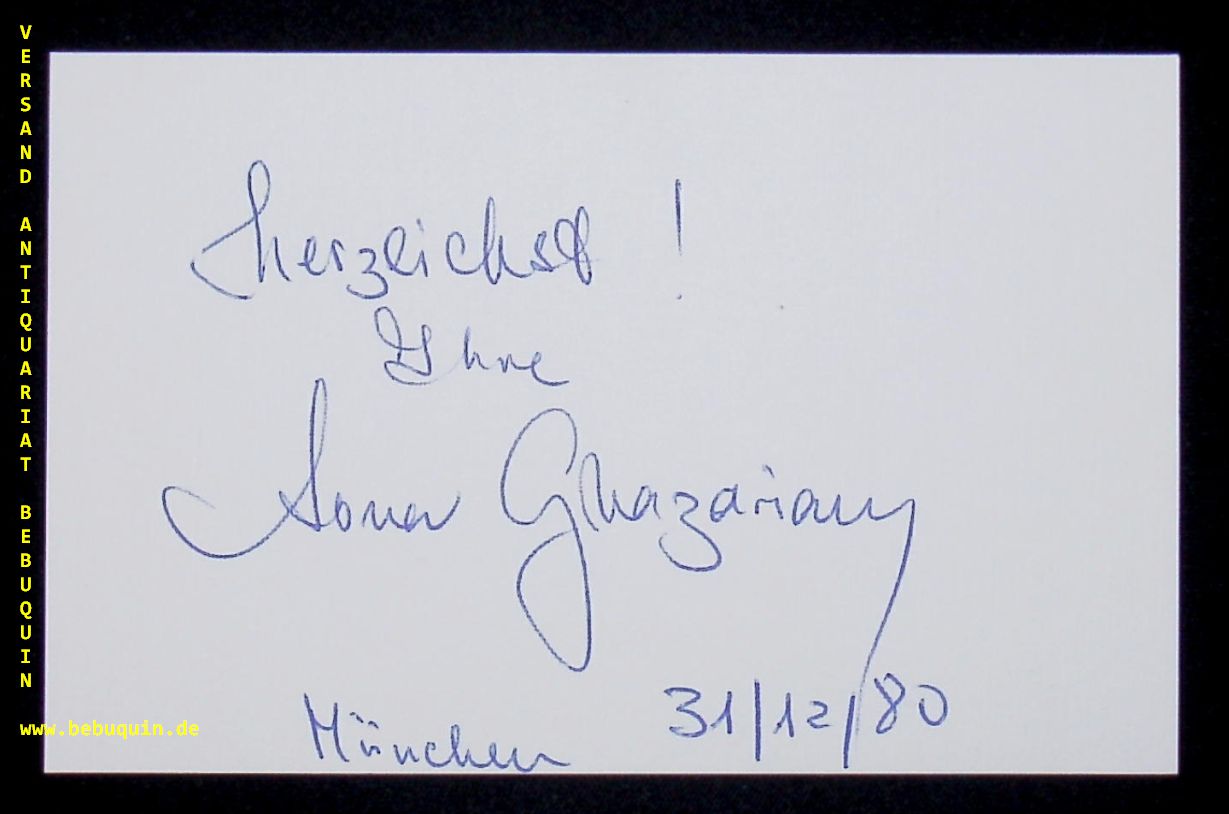 VERSAND ANTIQUARIAT BEBUQUIN
herzlichst !
Ihre
Sona Ghazarian
München 31/12/80
www.bebuquin.de